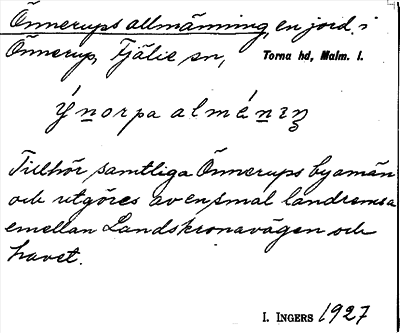 Önnerups allmänning, en jord i
Önnerup, Fjälie sn, Torna hd, Malm. l.
ýnorpa alménıŋ
Tillhör samtliga Önnerups byamän
och utgöres av en smal landremsa
emellan Landskronavägen och
havet.
I. INGERS 1927